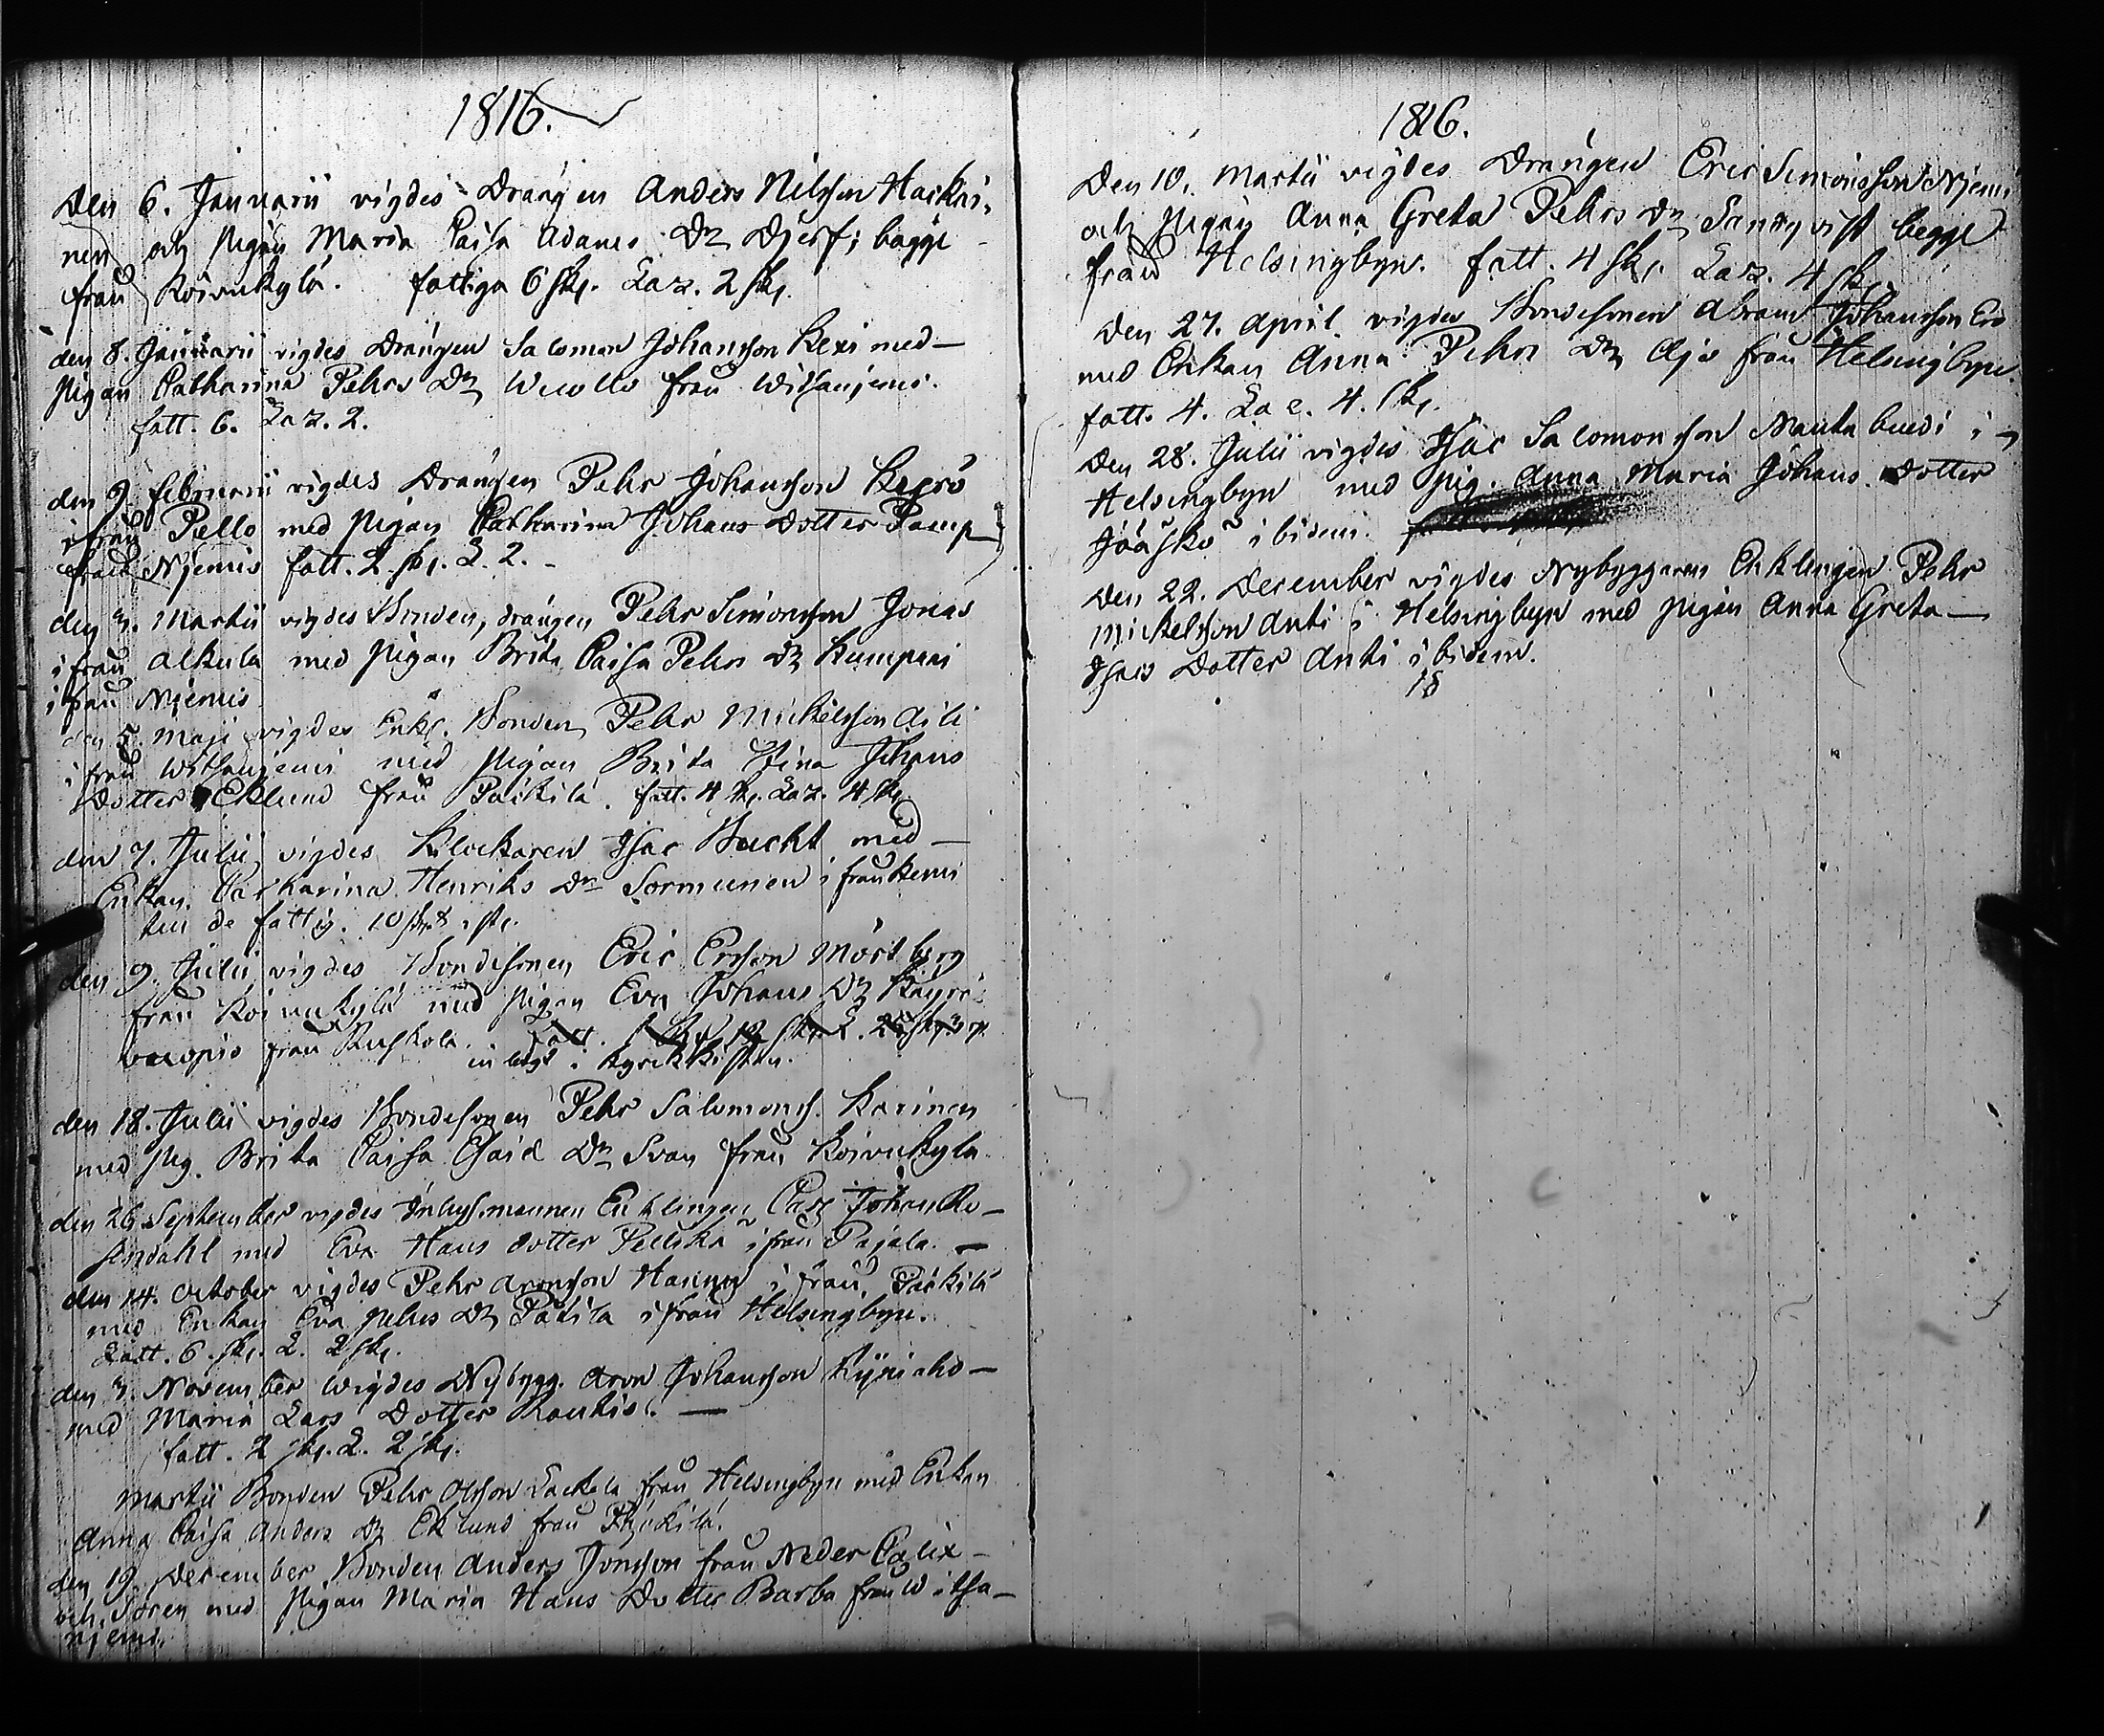 1816.
Den 6. Januarii vigdes Drängen Anders Nilsson Hackai,
nen och Pigan Maria Caisa Adams Dr Djerf; bägge
från Koivukylä. fattiga 6 sk. Laz. 2 sk.
den 8. Januarii vigdes Drängen Salomon Johansson Kexi med
Pigan Catharina Pehrs Dr Wuollo från Witsaniemi.
fatt. 6. Laz. 2.
den 9 februarii vigdes Drängen Pehr Johansson
ifrån Pello med Pigan Catharina Johans Dotter
från Njemis fatt. 2 sk. L. 2.
den 3. Martii vigdes Bonden, drängen Pehr Simonsson Jonas
ifrån Alkula med Pigan Brita Caisa Pehrs Dr Kumpani
ifrån Njemis
den 5. Maji vigdes Enkl. Bonden Pehr Mickelsson Aili
ifrån Witsanjemi med Pigan Brita Stina Johans
Dotter Eklund från Päckilä. fatt. 4 sk. Laz. 4 sk.
den 7. Julii vigdes Klockaren Isac Bucht med
Enkan Catharina Henriks Dr Sormunen ifrån Kemi
de fattig. 10 sk.
den 9. Julii vigdes Bondesonen Eric Ersson Mörtberg
från Koivukylä med Pigan Eva Johans Dr
vuopio från Ruskola. fatt.
inlagt i kyrckkistan.
den 18. Julii vigdes Bondesonen Pehr Salomons. Karinen
med Pig. Brita Caisa Esaid Dr Svan från Koivukyla
den 26 September vigdes Inhysmannen Enklingen Carl Johan Ro-
sendahl med Eva Hans dotter ifrån Pajala.
den 14. October vigdes Pehr Aronsson Hannu ifrån Päckilä
med Enkan Eva Pehrs Dr Päkila ifrån Helsingbyn.
fatt. 6. sk. L. 2 sk.
den 3. November wigdes Nybygg. Aron Johansson Kyniaho
med Maria Lars Dotter Rautio.
fatt. 2 sk. L. 2 sk.
Martii Bonden Pehr Olsson Lackola från Helsingbyn med Enkan
Anna Caisa Anders Dr Eklund från Päckilä.
den 19 December Bonden Anders Jönsson från Neder Calix
och Sören med Pigan Maria Hans Dotter Barba från Witsa-
njemi.
1816.
Den 10. Martii vigdes Drängen Eric Simonsson Njemi
och Pigan Anna Greta Pehrs Dr Sandqvist begge
från Helsingbyn. fatt. 4 sk. Laz. 4 sk.
Den 27. April vigdes Bondesonen Abram Johansson Ero
med Enkan Anna Pehrs Dr Ajo från Helsingbyn.
fatt. 4. Laz. 4. sk.
Den 28. Julii vigdes Isac Salomonsson Mautabuodi i
Helsingbyn med pig. Anna Maria Johans Dotter
Jääskö ibidem.
Den 22. December vigdes Nybyggaren Enklingen Pehr
Mickelsson Anti i Helsingbyn med Pigan Anna Greta
Isacs Dotter Anti ibidem.
18